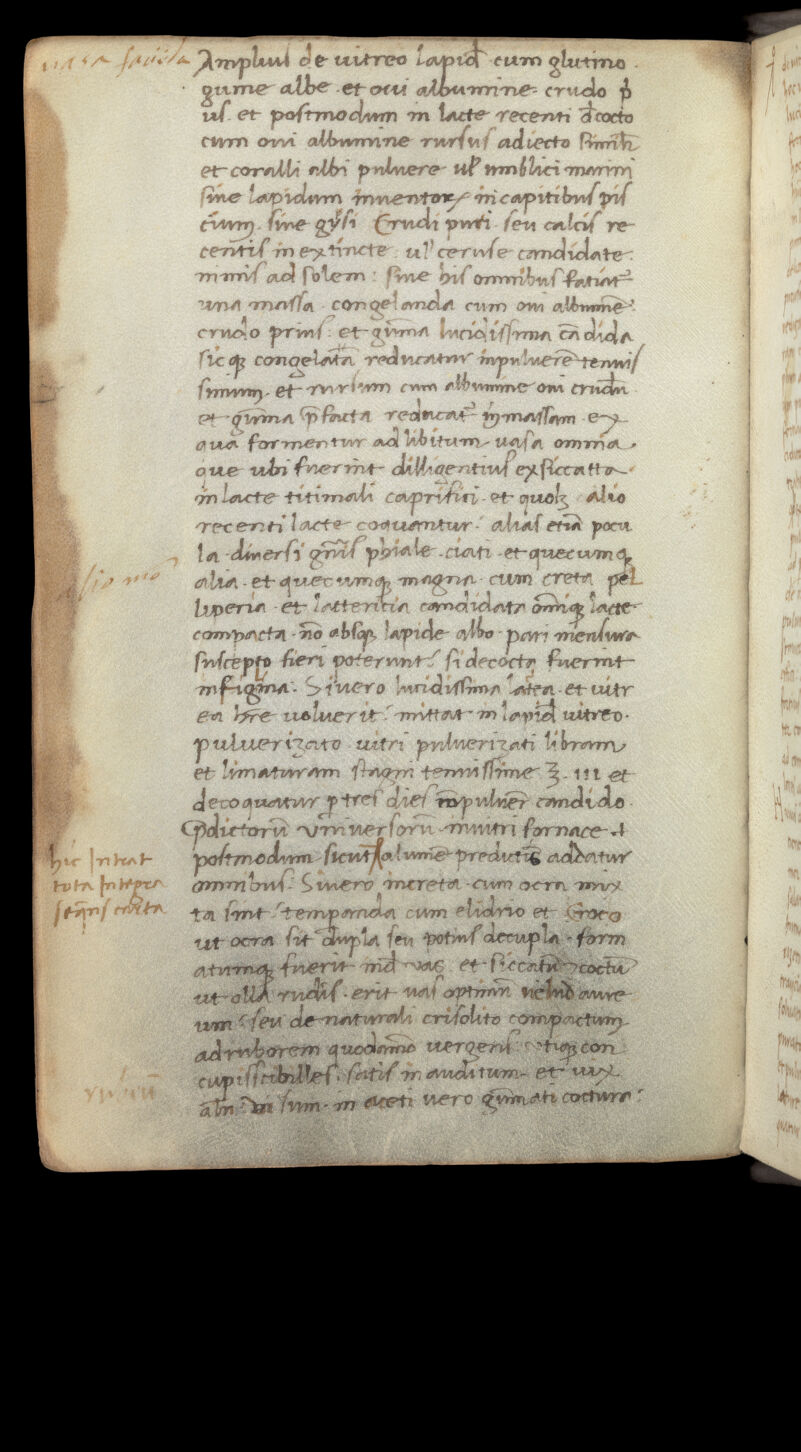 Ampluul de uitreo lapid̄ cum glutino
gume albe · et oui albumine crudo p̄
us · et postmodum in lacte recenti d̄cocto
cum oui albumine rursus adiecto simili
et coralli albi puluere ul̄ umblici marini
siue lapidum inuentor in capitibus pis
cium · siue gysi Crudi puri · seu calcis re
centis in extincte : ul̄ ceruse candidate
nimis ad solem : siue his omnibus fatiat᷑
una massa · congelanda cum oui albumē
crudo prius : et gūma lucidissima cādida
sicq; congelata reducatur in puluerē tenuis
simum · et rursum cum albumine oui crudū
et gūma p̄facta reducat᷑ in massam · ex
qua formentur ad libitum uasa omnia ·
que ubi fuerint dilligentius exsiccatta
in lacte titimali caprifici · et quolꝫ alio
recenti lacte coquantur : alias etiā pocu
la diuersi gn̄is phiale · ciati · et quecumq;
alia · et quecumq; magna · cum creta pel
liperia · et lattericia candidata omīq; lacte
compacta · nō absq; lapide albo · pari mensura
suscepto fieri poterunt : si decocta fuerint
in figīna : Si uero lucidissima latea · et uitr
ea hr̄e uoluerit : mittat in lapid̄ uitreo ·
puluerizato uitri puluerizati libram
et limaturam stagni tenuissime ℥ · III et
decoquatur p tres dies in puluer̄ candido ·
p̄dictorū uniuersorū in uitri fornace et
postmodum sicut alumē predictis addatur
omnibus : Si uero in creta · cum ocra mix
ta sint : temparanda cum elidrio et Croco
ut ocra sit dupla seu potius decupla · form
atumq; fuerit ind̄ uas · et siccatū coctū
ut olla rudis · erit uas optimū uelud aure
um : seu de naturali crisolito compactum
ad ruborem quodāmō uergens utiq; con
cupisscibilles · satis in auditum · et uix
ab in sum · in aceti uero gūmati coctura :
hic Intrat
tota Integra
seq̄ns carta
rubiū